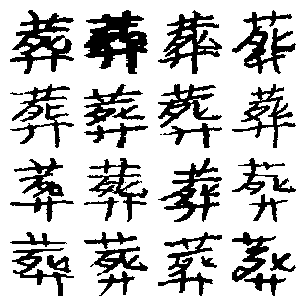 葬葬葬葬
葬葬葬葬
葬葬葬葬
葬葬葬葬